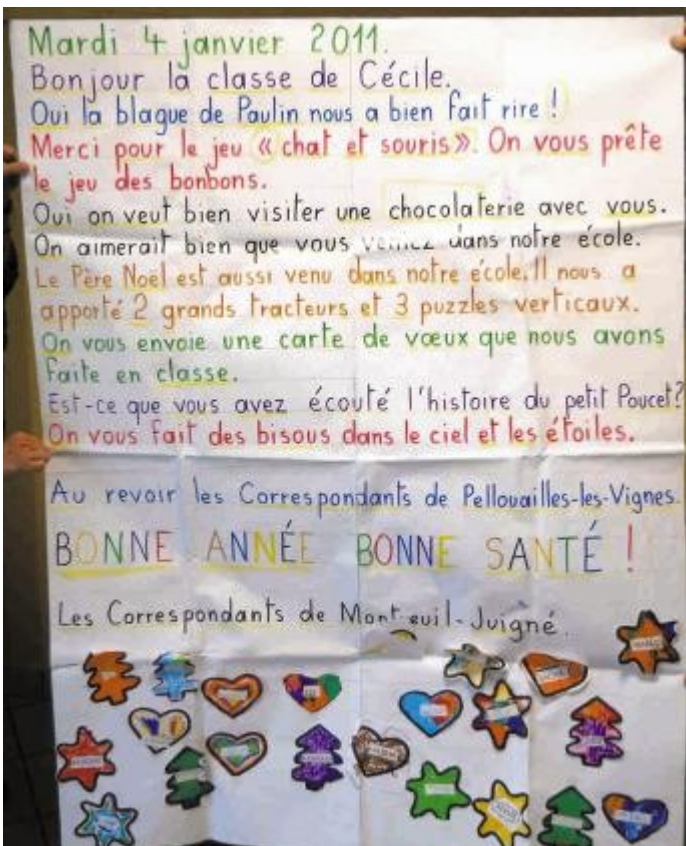 Mardi 4 janvier 2011.
Bonjour la classe de Cécile.
Oui la blague de Paulin nous a bien fait rire !
Merci pour le jeu « chat et souris ». On vous prête
le jeu des bonbons.
Oui on veut bien visiter une chocolaterie avec vous.
On aimerait bien que vous dans notre école.
Le Père Noel est aussi venu dans notre école. Il nous a
apporté 2 grands tracteurs et 3 puzzles verticaux.
On vous envoie une carte de vœux que nous avons
faite en classe.
Est-ce que vous avez écouté l'histoire du petit Poucet?
On vous fait des bisous dans le ciel et les étoiles.
Au revoir les Correspondants de Pellouailles-les-Vignes.
BONNE ANNÉE BONNE SANTÉ !
Les Correspondants de Montreuil-Juigné.